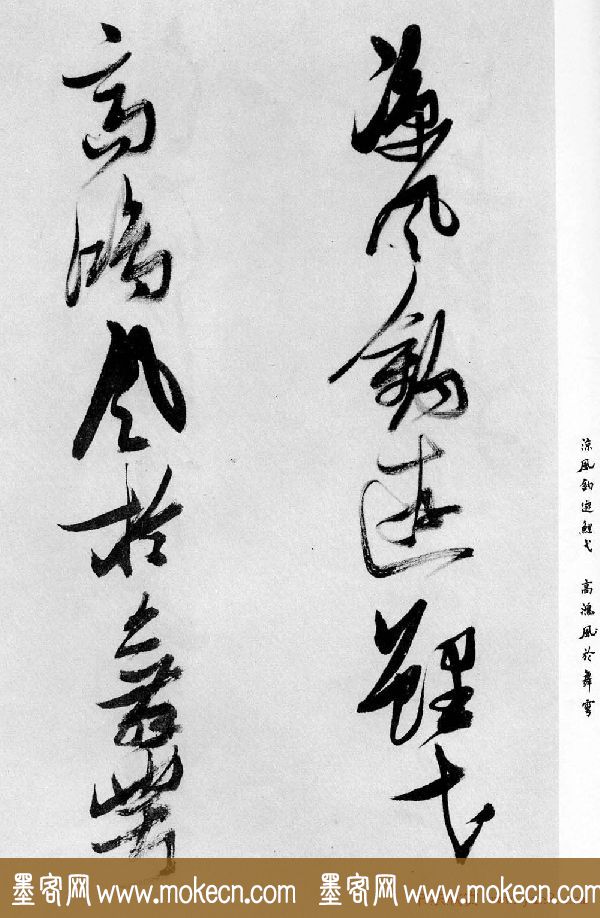 涼風釣遊鯉弋
高鴻風於舞雩
涼風釣遊鯉弋 高鴻風於舞雩
墨客网 www.mokecn.com 墨客网 www.mokecn.com